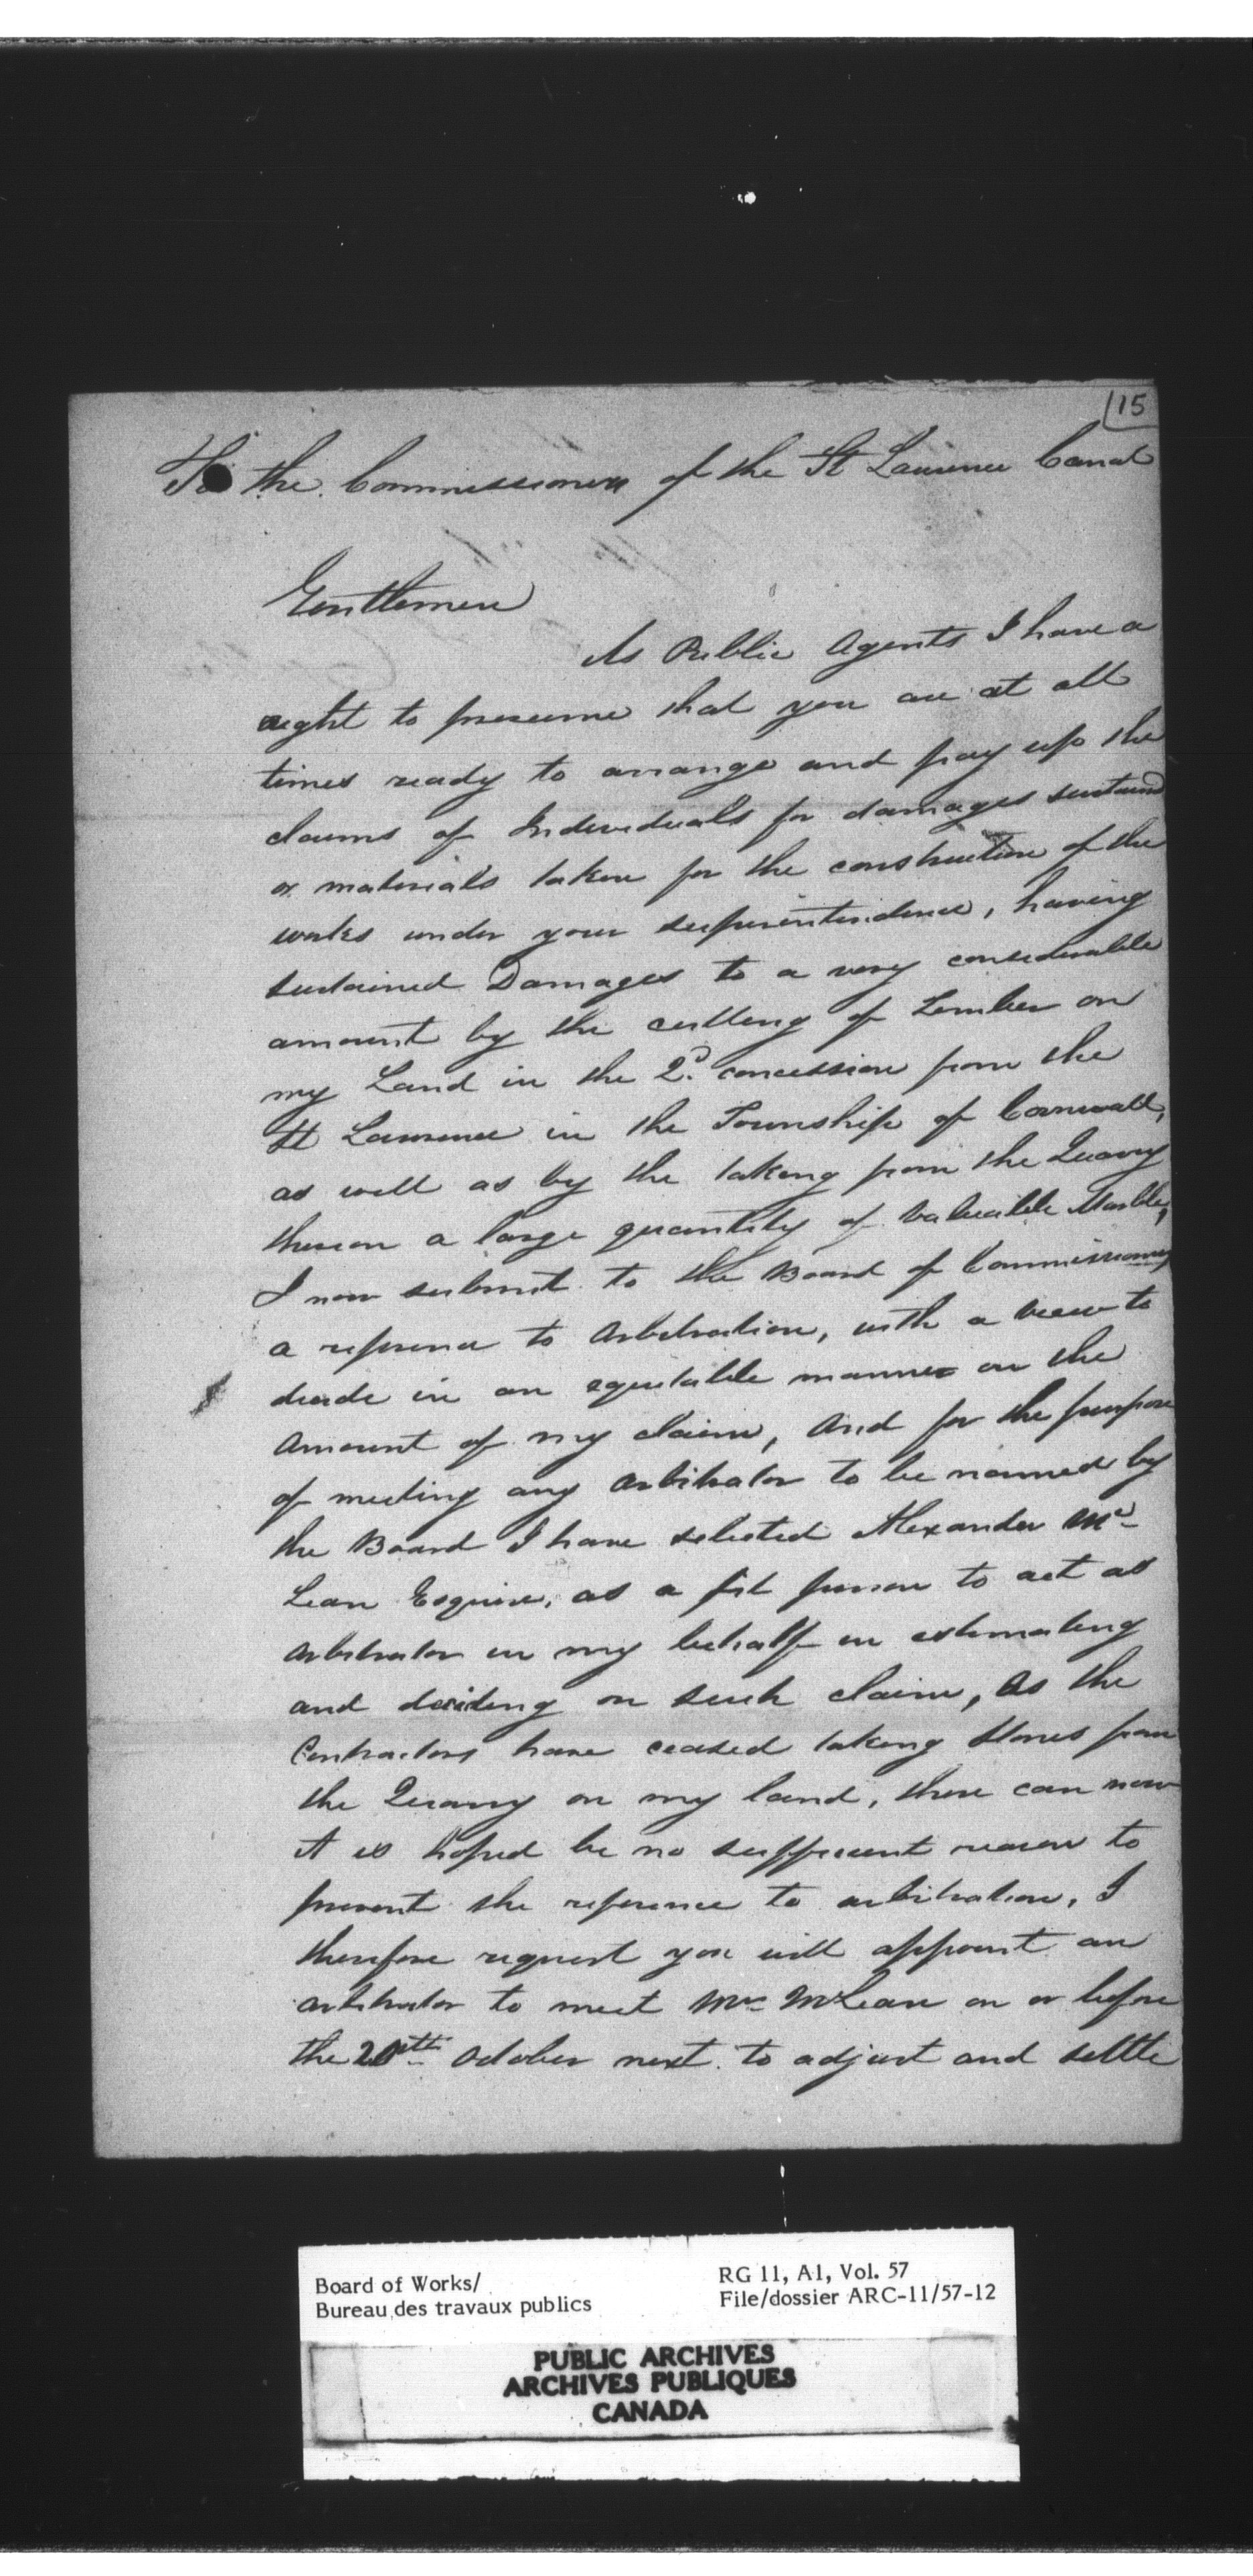 15
To the Commissioners of the St Laurence Canal
Gentlemen
As Public Agents I have a
right to presume that you are at all
times ready to arrange and pay up the
claims of Individuals for damages sustained
or materials taken for the construction of the
works under your superintendence, having
sustained Damages to a very considerable
amount by the cutting of Timber on
my Land in the 2d. concession from the
St Laurence in the Township of Cornwall,
as well as by the taking from the Quarry
thereon a large quantity of valuable Marble,
I now submit to the Board of Commissioners
a reference to Arbitration, with a view to
decide in an equitable manner on the
Amount of my claim, And for the purpose
of meeting any Arbitrator to be named by
the Board I have selected Alexander Mc
Lean Esquire, as a fit person to act as
Arbitrator in my behalf in estimating
and deciding on such claim, As the
Contractors have ceased taking Stones from
the Quarry on my land, there can now
it is hoped be no sufficient reason to
prevent the reference to arbitration, I
therefore request you will appoint an
arbitrator to meet Mr McLean on or before
the 20th October next to adjust and settle
Board of Works/
Bureau des travaux publics
RG 11, A1, Vol. 57
File/dossier ARC-11/57-12
PUBLIC ARCHIVES
ARCHIVES PUBLIQUES
CANADA